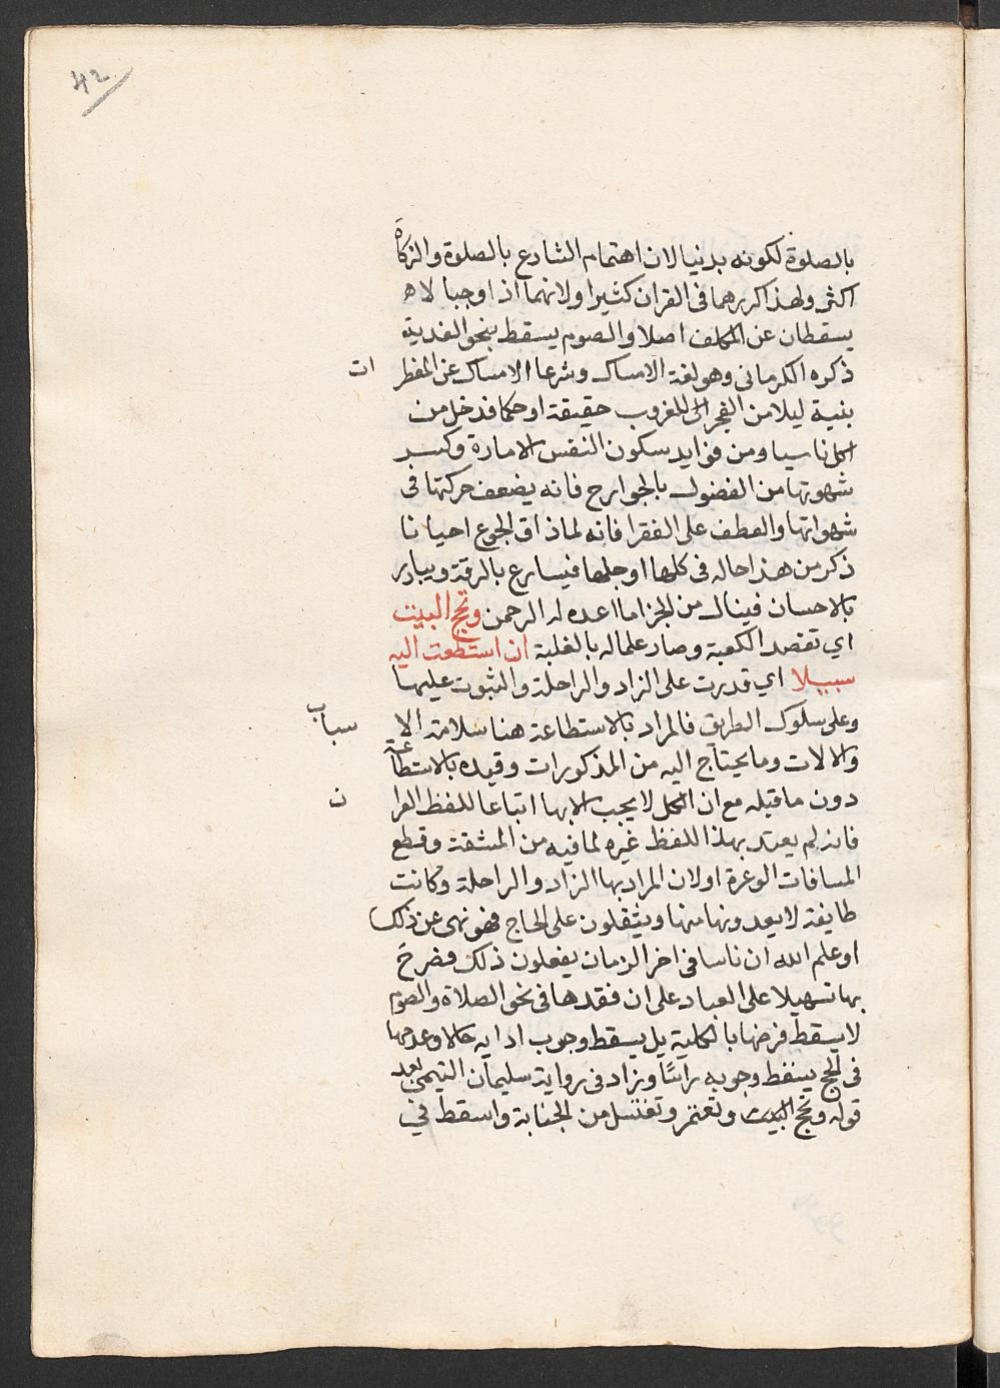 42
بالصلوة لكونه بدنيا لان اهتمام الشارع بالصلوة والزكاة
اكثر ولهذا كررهما في القران كثيرا ولانهما اذا وجبا لا ه
يسقطان عن المكلف اصلا والصوم يسقط بنحو الفدية
ذكره الكرماني وهو لغة الامساك وشرعا الامساك عن المفطر ات
بنية ليلا من الفجر الى الغروب حقيقة او حكما فدخل من
اكل ناسيا ومن فوايد سكون النفس الامارة وكسر
شهوتها من الفضول بالجوارح فانه يضعف حركتها في
شهواتها والعطف على الفقرا فانه لما ذاق الجوع احيانا
ذكر من هذا حاله في كلها او جلها فيسارع بالرقة ويبادر
بالاحسان فينال من الجزا ما اعده له الرحمن وتحج البيت
اي تقصد الكعبة وصار علما له بالغلبة ان استطعت اليه
سبيلا اي قدرت على الزاد والراحلة والثبوت عليها
وعلى سلوك الطريق فالمراد بالاستطاعة هنا سلامة الا سباب
والالات وما يحتاج اليه من المذكورات وقيده بالاستطاعة
دون ما قبله مع ان الكل لا يجب الا بها اتباعا للفظ القرا ن
فانه لم يعتد بهذا اللفظ غيره لما فيه من المشقة وقطع
المسافات الوعرة او لان المراد بها الزاد والراحلة وكانت
طايفة لا يعدونها منها ويثقلون على الحاج فهو نهى عن ذلك
او علم الله ان ناسا في اخر الزمان يفعلون ذلك فصرح
بها تسهيلا على العباد على ان فقدها في نحو الصلاة والصوم
لا يسقط فرضها بالكلية بل يسقط وجوب ادايه حالا وعدمها
في الحج يسقط وجوبه راسًا وزاد في رواية سليمان التيمي بعد
قوله وتحج البيت وتعتمر وتغتسل من الجنابة واسقط في